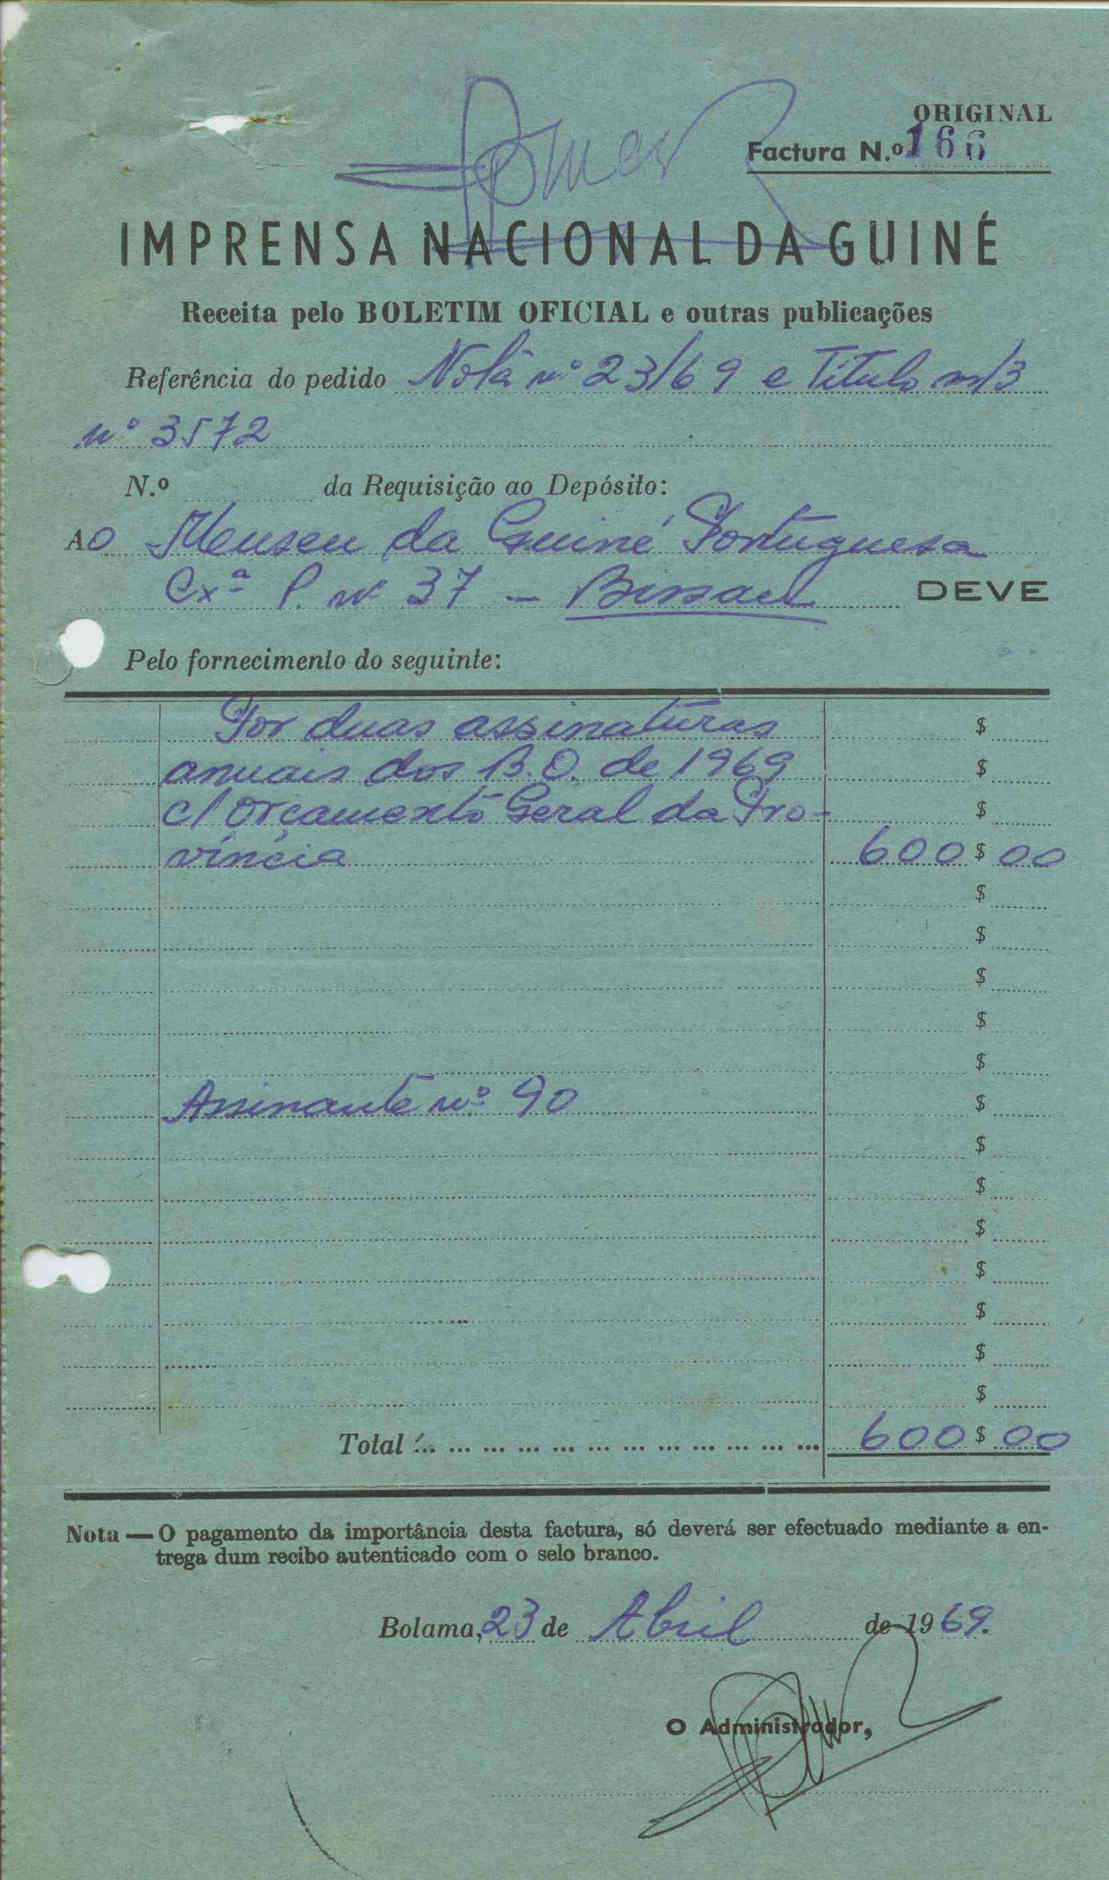 ORIGINAL
Factura N.º 166
IMPRENSA NACIONAL DA GUINÉ
Receita pelo BOLETIM OFICIAL e outras publicações
Referência do pedido Nota nº 23/69 e Titulo m/3
nº 3572
N.º da Requisição ao Depósito:
AO Meuseu da Guiné Portuguesa
Cxª P. nº 37 - Bissau DEVE
Pelo fornecimento do seguinte:
Por duas assinaturas $
anuais dos B.O. de 1969 $
c/ Orçamento Geral da Pro- $
víncia 600 $ 00
$
$
$
$
$
Assinante nº 90 $
$
$
$
$
$
$
$
Total ... ... ... ... ... ... ... ... ... ... ... ... 600 $ 00
Nota — O pagamento da importância desta factura, só deverá ser efectuado mediante a en-
trega dum recibo autenticado com o selo branco.
Bolama, 23 de Abril de 1969.
O Administrador,